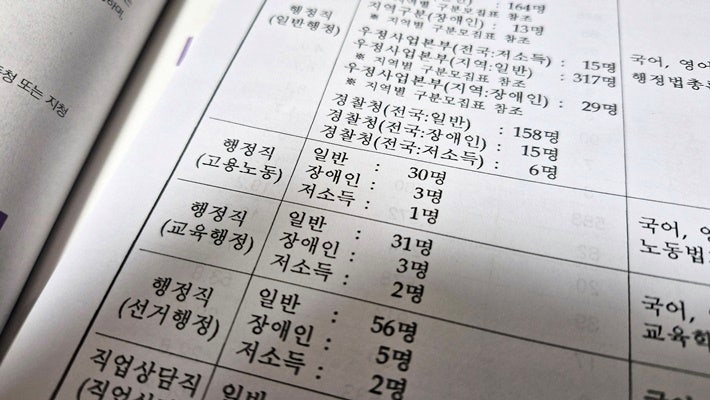 하며,
독청 또는 지청
행정직
(일반행정)
: 164명
지역구분(장애인) : 13명
※ 지역별 구분모집표 참조
우정사업본부(전국:저소득) : 15명
우정사업본부(지역:일반) : 317명
※ 지역별 구분모집표 참조
우정사업본부(지역:장애인) : 29명
※ 지역별 구분모집표 참조
경찰청(전국:일반) : 158명
경찰청(전국:장애인) : 15명
경찰청(전국:저소득) : 6명
국어, 영어
행정법총
행정직
(고용노동)
일반 : 30명
장애인 : 3명
저소득 : 1명
국어, 영
노동법
행정직
(교육행정)
일반 : 31명
장애인 : 3명
저소득 : 2명
국어, 영
교육학
행정직
(선거행정)
일반 : 56명
장애인 : 5명
저소득 : 2명
직업상담직
(직업상담)
일반